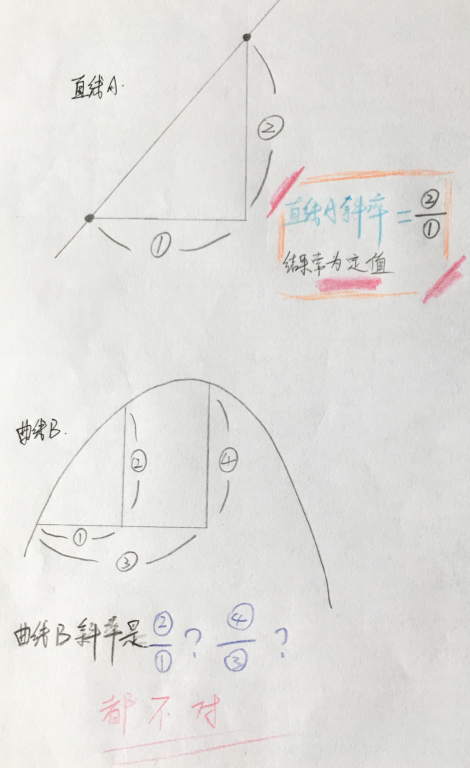 直线A.
②
①
直线A斜率=②/①
结果常为定值
曲线B.
②
④
①
③
曲线B斜率是②/①? ④/③?
都不对